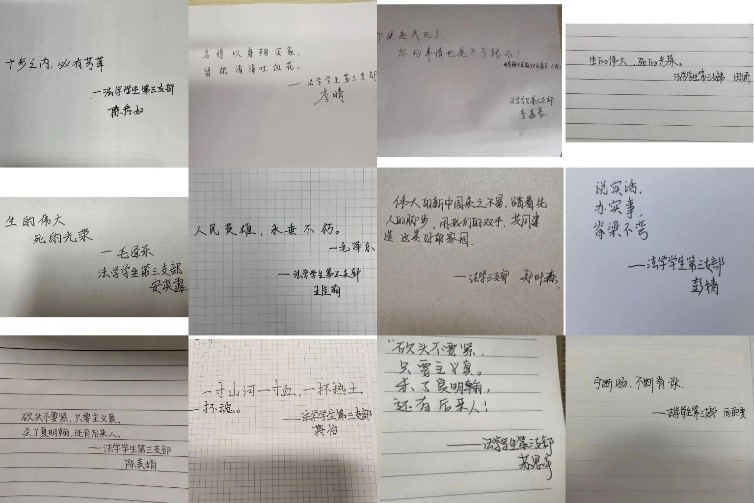 十步之内，必有芳草
——法学学生第三支部
名将以身殉国家，
——法学学生第三支部
李晴
你的事情也是不可能的！
法学学生第三支部
生的伟大，死的光荣。
法学学生第三支部
生的伟大
死的光荣
——毛泽东
法学学生第三支部
人民英雄，永垂不朽。
——毛泽东
——法学学生第三支部
伟大的新中国来之不易，踏着先
人的脚步，用我们的双手，共同建
造这美好的家园。
——法学三支部
说实话，
办实事，
脊梁不弯
——法学学生第三支部
彭楠
砍头不要紧，只要主义真，
杀了夏明翰，还有后来人。
——法学学生第三支部
一寸山河一寸血，一抔热土
一抔魂。
——法学学生第三支部
"砍头不要紧，
只要主义真。
杀了夏明翰，
还有后来人！
——法学学生第三支部
宁断肠，不断脊梁。
——法学学生第三支部